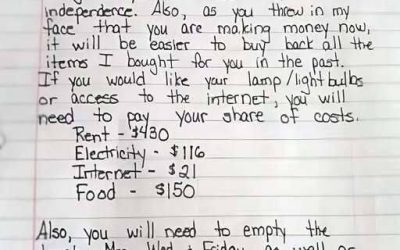 independence. Also, as you threw in my
face that you are making money now,
it will be easier to buy back all the
items I bought for you in the past.
If you would like your lamp/lightbulbs
or access to the internet, you will
need to pay your share of costs.
Rent - $430
Electricity - $116
Internet - $21
Food - $150
Also, you will need to empty the
Mon, Wed + Friday as well as